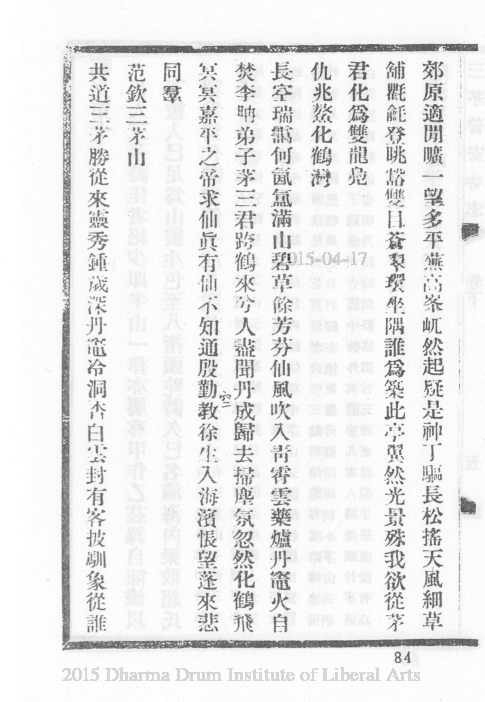 郊原適閒曠一望多平蕪高峯屹然起疑是神丁驅長松搖天風細草
舖氍毹登眺豁雙目蒼翠環坐隅誰爲築此亭翼然光景殊我欲從茅
君化爲雙龍鳧
仇兆鰲化鶴灣
長空瑞靄何氤氳滿山碧草餘芳芬仙風吹入靑霄雲藥爐丹竈火自
焚李 弟子茅三君跨鶴來兮人盡聞丹成歸去掃塵氛忽然化鶴飛
冥冥嘉平之帝求仙眞有仙不知通殷勤教徐生入海濱悵望蓬來悲
(空)
同羣
范欽三茅山
共道三茅勝從來靈秀鍾歲深丹竈冷洞杳白雲封有客披馴象從誰
2015-04-17
84
2015 Dharma Drum Institute of Liberal Arts